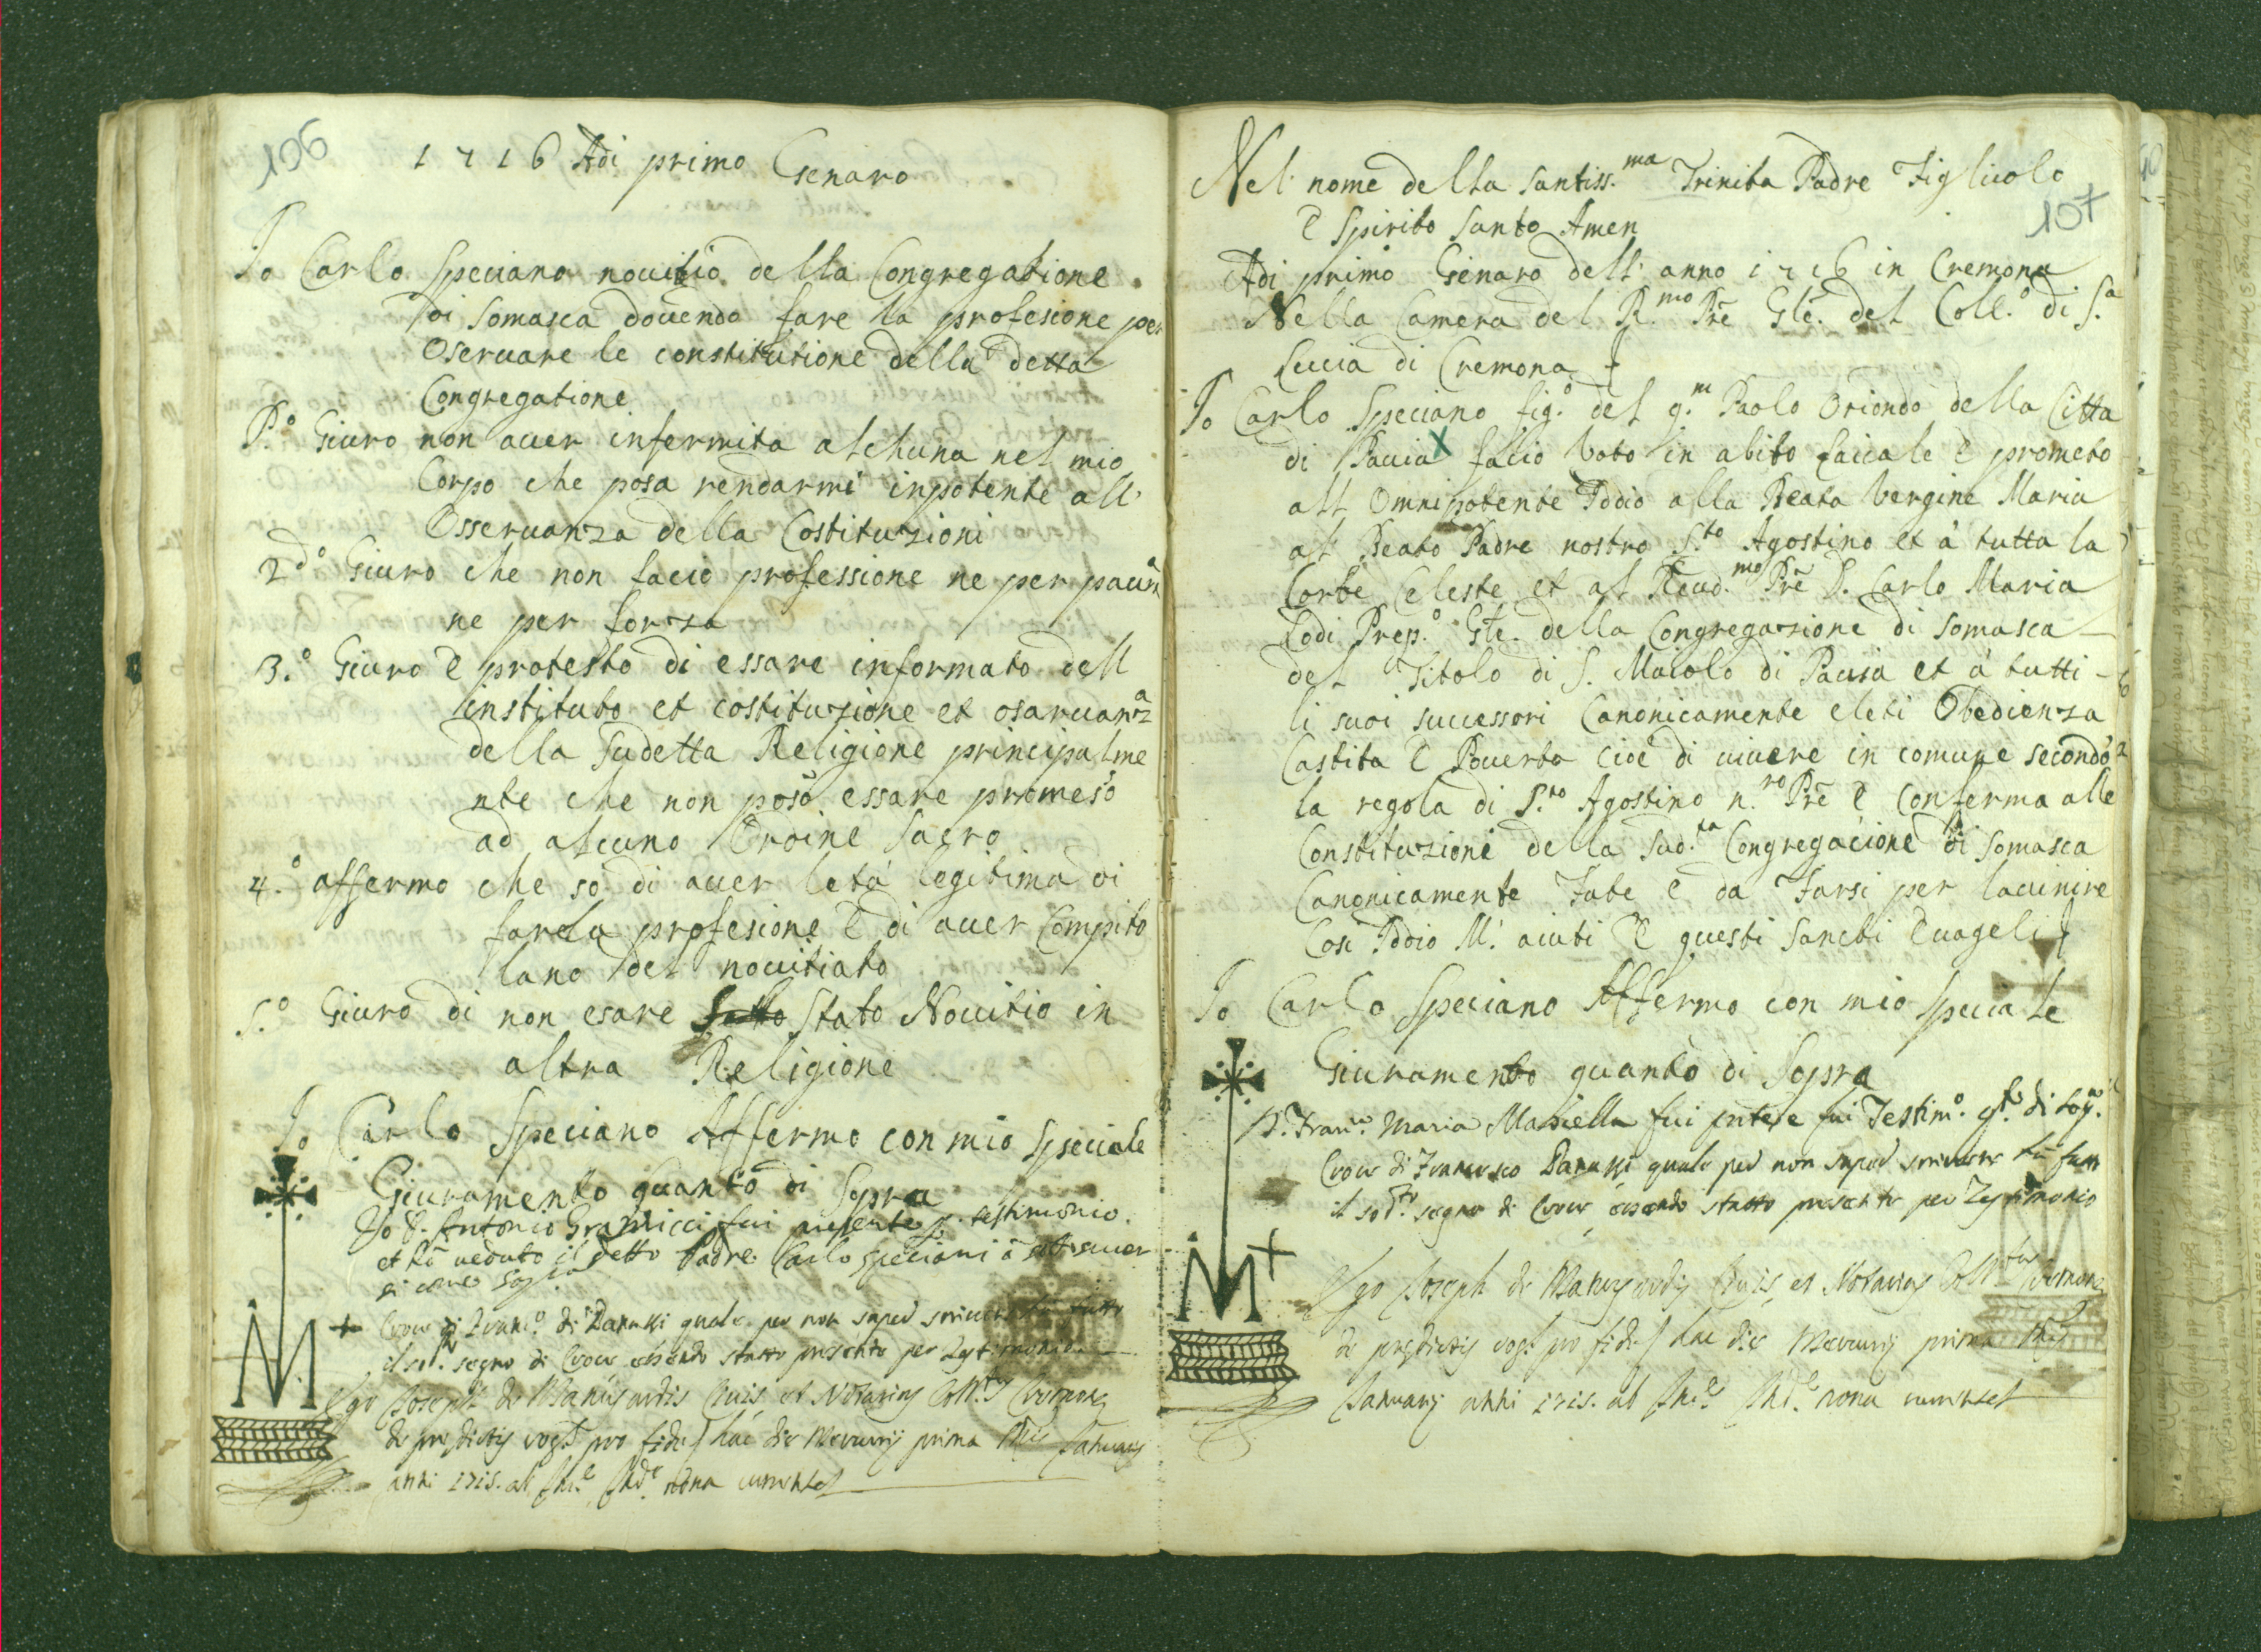 106
1716 Adi primo Genaro
Io Carlo Speciano novitio della Congregatione
di Somasca dovendo fare la profesione per
Oservare le constitutione della detta
Congregatione
P.º Giuro non aver infermita alchuna nel mio
Corpo che posa rendarmi inpotente all'
Osservanza della Costituzioni
2dº Giuro che non facio professione ne per paura
ne per forza
3.º Giuro e protesto di essare informato dell
instituto et costituzione et osarvanza
della Sudetta Religione principalme
nte che non poso essare promeso
ad alcuno Ordine Sacro
4.º affermo che so di aver letà legitima di
farela profesione e di aver Compito
lano del novitiato
5.º Giuro di non esare Stato Novitio in
altra Religione
Io Carlo Speciano Affermo con mio Speciale
Giuramento quanto di Sopra
Io D. Antonio fui presente p. testimonio.
et hò veduto il detto Padre Carlo Speciani à
di come Sopra
Croce di Franc.º di quale per non saper scrivere hà fatto
il sod.º segno di Croce essendo statto presente per Testimonio
M +
Ego Joseph de et Notarius Coll.tus Cremonę
de prędictis rog.s pro fide hac die Mercurij prima Januarij
anni 1715. ab nona currente
107
Nel nome della Santiss.ma Trinita Padre Figlicolo
e Spirito Santo Amen
Adi primo Genaro dell' anno 1716 in Cremona
Nella Camera del R.mo Prē Glē. del Coll.º di S.a
Luccia di Cremona
Io Carlo Speciano fig.º del q.m Paolo Oriondo della Citta
di Pavia X facio Voto in abito Laicale e prometo
all Omnipotente Iddio alla Beata Vergine Maria
al Beato Padre nostro S.to Agostino et à tutta la
Corte Celeste et al Revd.mo Prē D. Carlo Maria
Lodi Prep.º Glē. della Congregazione di Somasca
del Titolo di S. Maiolo di Pavia et à tutti
li suoi successori Canonicamente eleti Obedienza
Castita e Poverta cioè di vivere in comune secondo
la regola di S.to Agostino n.ro Prē e Conferma alle
Constituzione della Sud.ta Congregacione di Somasca
Canonicamente Fate e da Farsi per lavenire
Cosi Iddio M' aiuti e questi Sancti Evageli
Io Carlo Speciano Affermo con mio Speciale
Giuramento quanto di Sopra
D. Fran.co Maria fui pnte, e fui Testim.º di sop.a
Croce di Francesco quale per non saper scrivere hà fatto
il sod.to segno di Croce essendo statto presente per Testimonio
M +
Ego Joseph de et Notarius Coll.tus Cremonę
de prędictis rog.s pro fide hac die Mercurij prima
Januarij anni 1715. ab nona currente